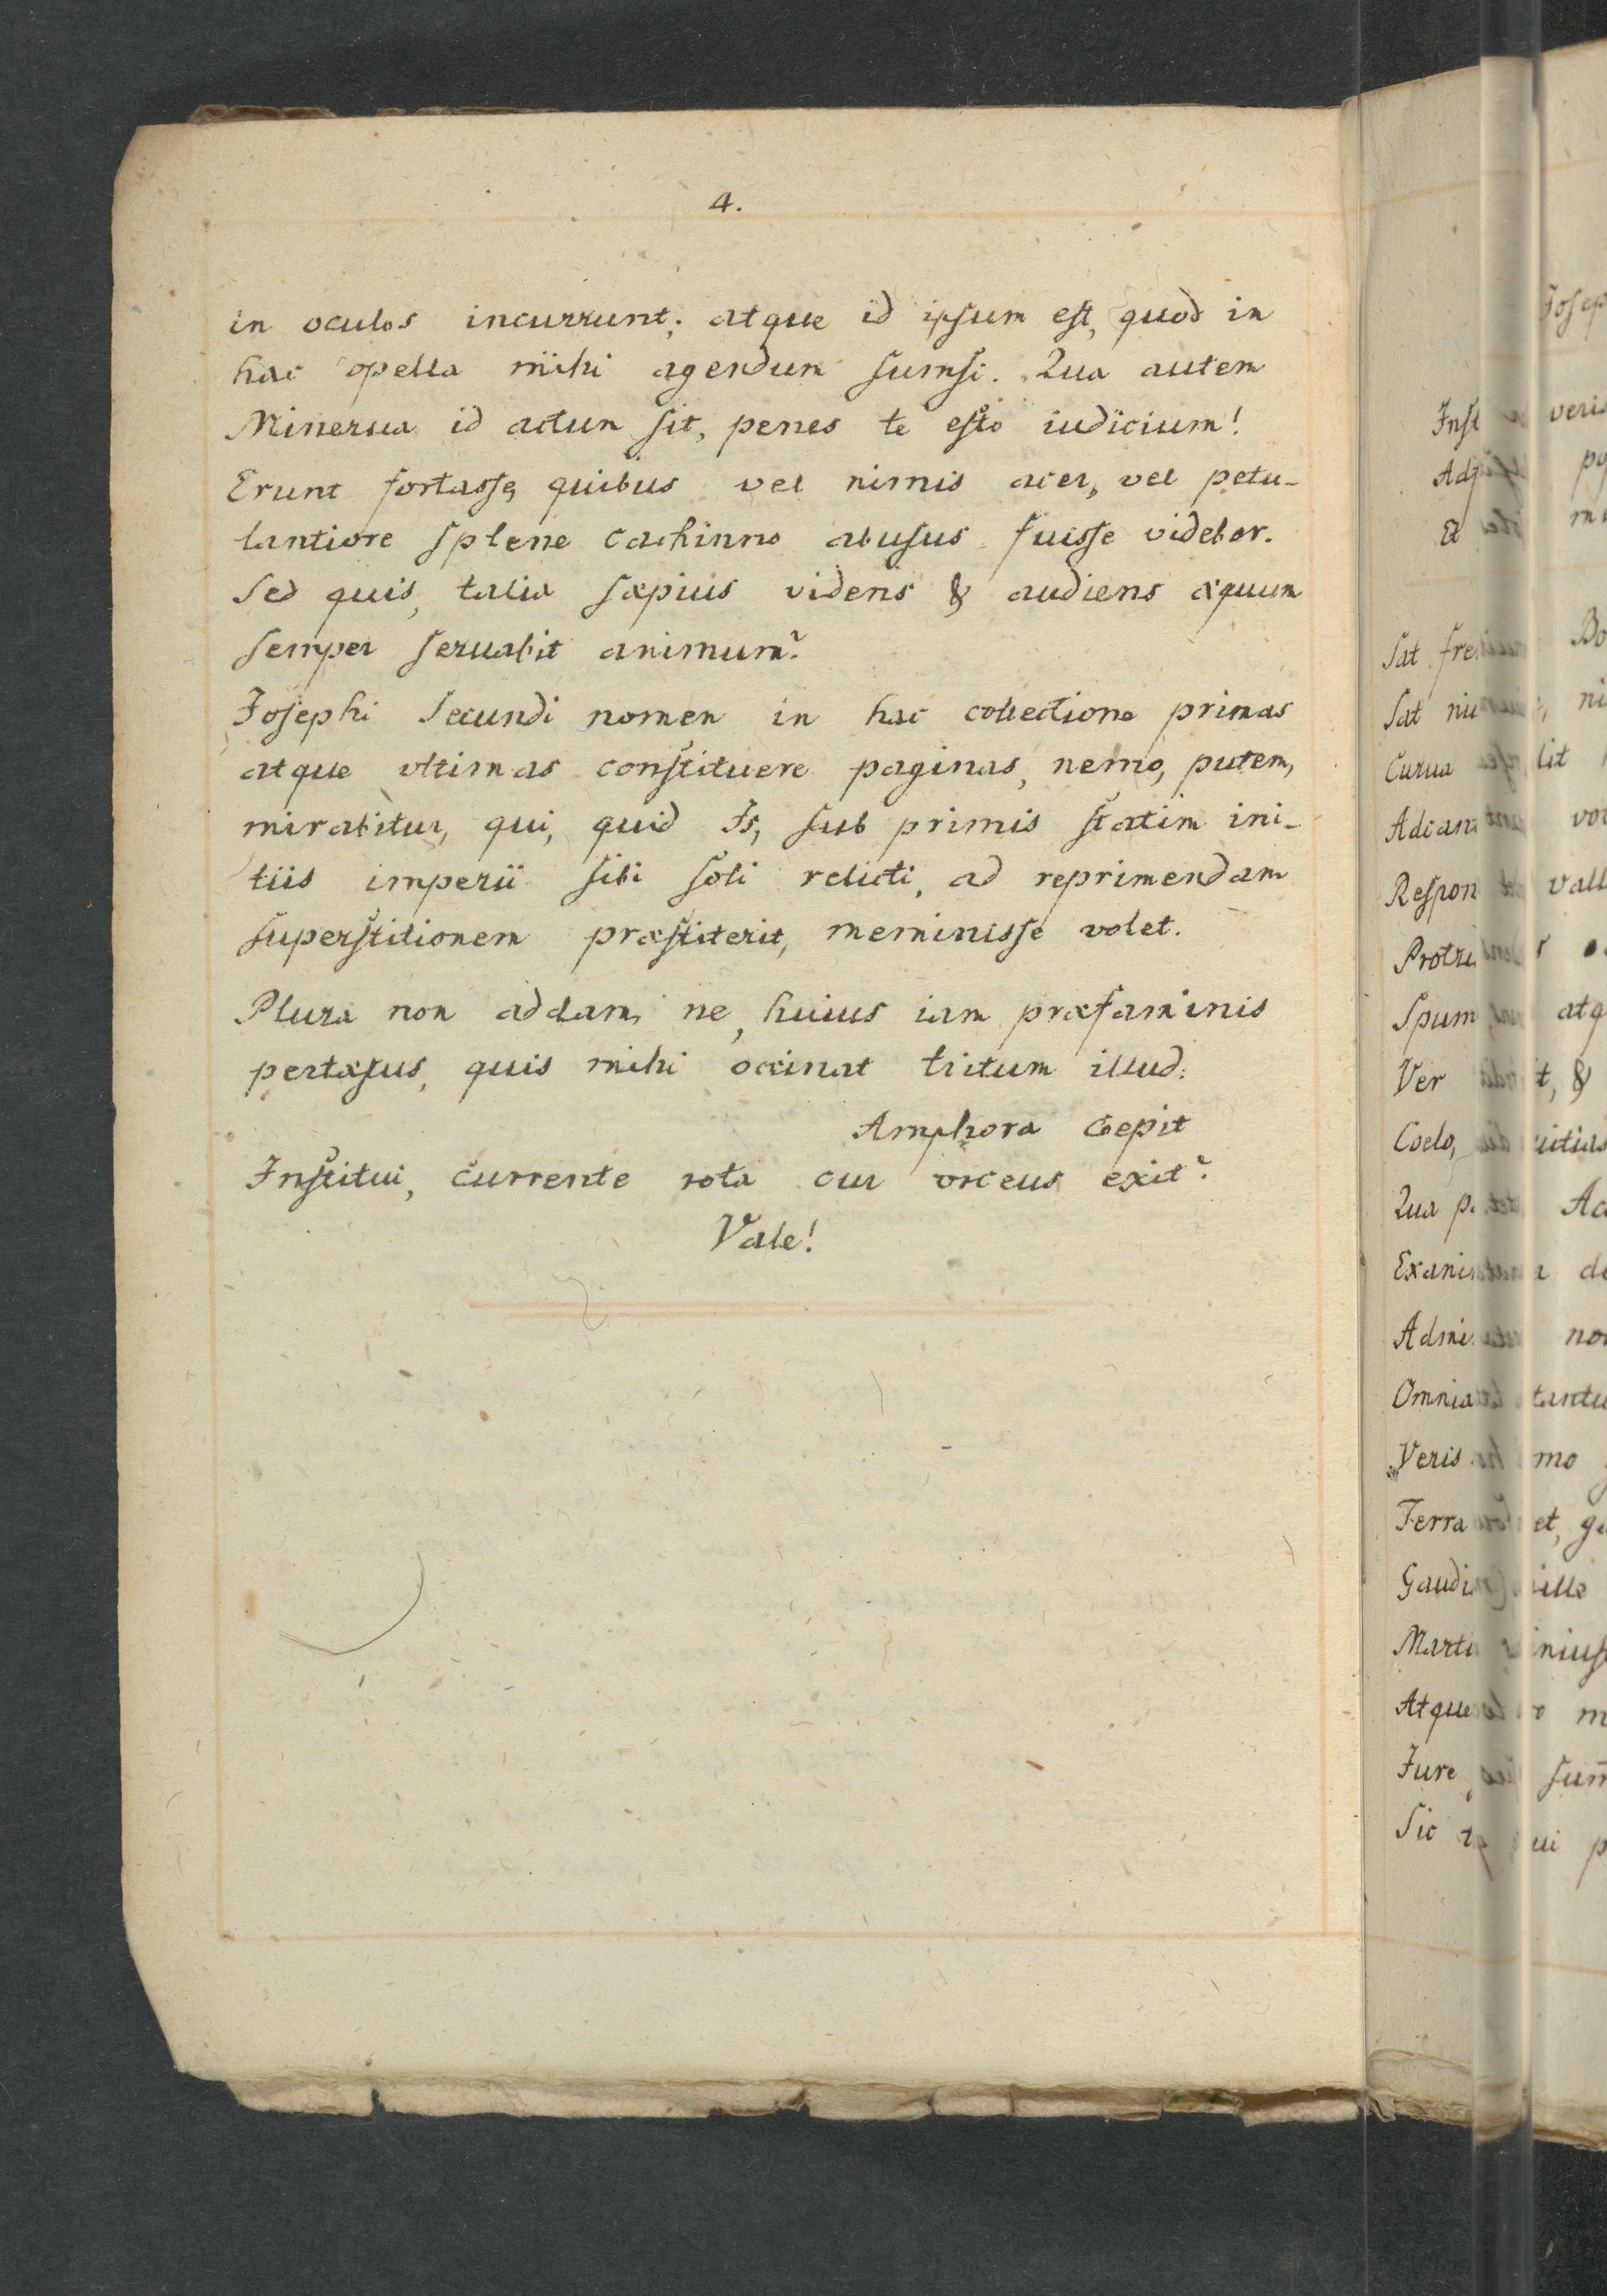 4.
in oculos incurrunt; atque id ipsum est, quod in
hac opella mihi agendum sumsi. Qua autem
Minerua id actum sit, penes te esto iudicium!
Erunt fortasse, quibus vel nimis acer, vel petu-
lantiore splene cachinno abusus fuisse videbor.
Sed quis, talia sæpius videns & audiens æquum
semper seruabit animum?
Josephi Secundi nomen in hac collectione primas
atque vltimas constituere paginas, nemo, putem,
mirabitur, qui, quid Is, sub primis statim ini-
tiis imperii sibi soli relicti, ad reprimendam
superstitionem præstiterit, meminisse volet.
Plura non addam, ne, huius iam præfaminis
pertæsus, quis mihi occinat tritum illud:
Amphora coepit
Institui, currente rota cur vrceus exit?
Vale!
Josep
Inst veris
Adf
Et
Sat fre Bo
Sat ni
Curua lit
Adcan
Respon vall
Protr
Spum atq
Ver t, &
Coelo, uitias
Qua p Ac
Exani de
Admi non
Omnia tantu
Veris mo
Terra et, ga
Gaudi ille
Marti nius
Atque m
Jure sum̄
Sic ui p